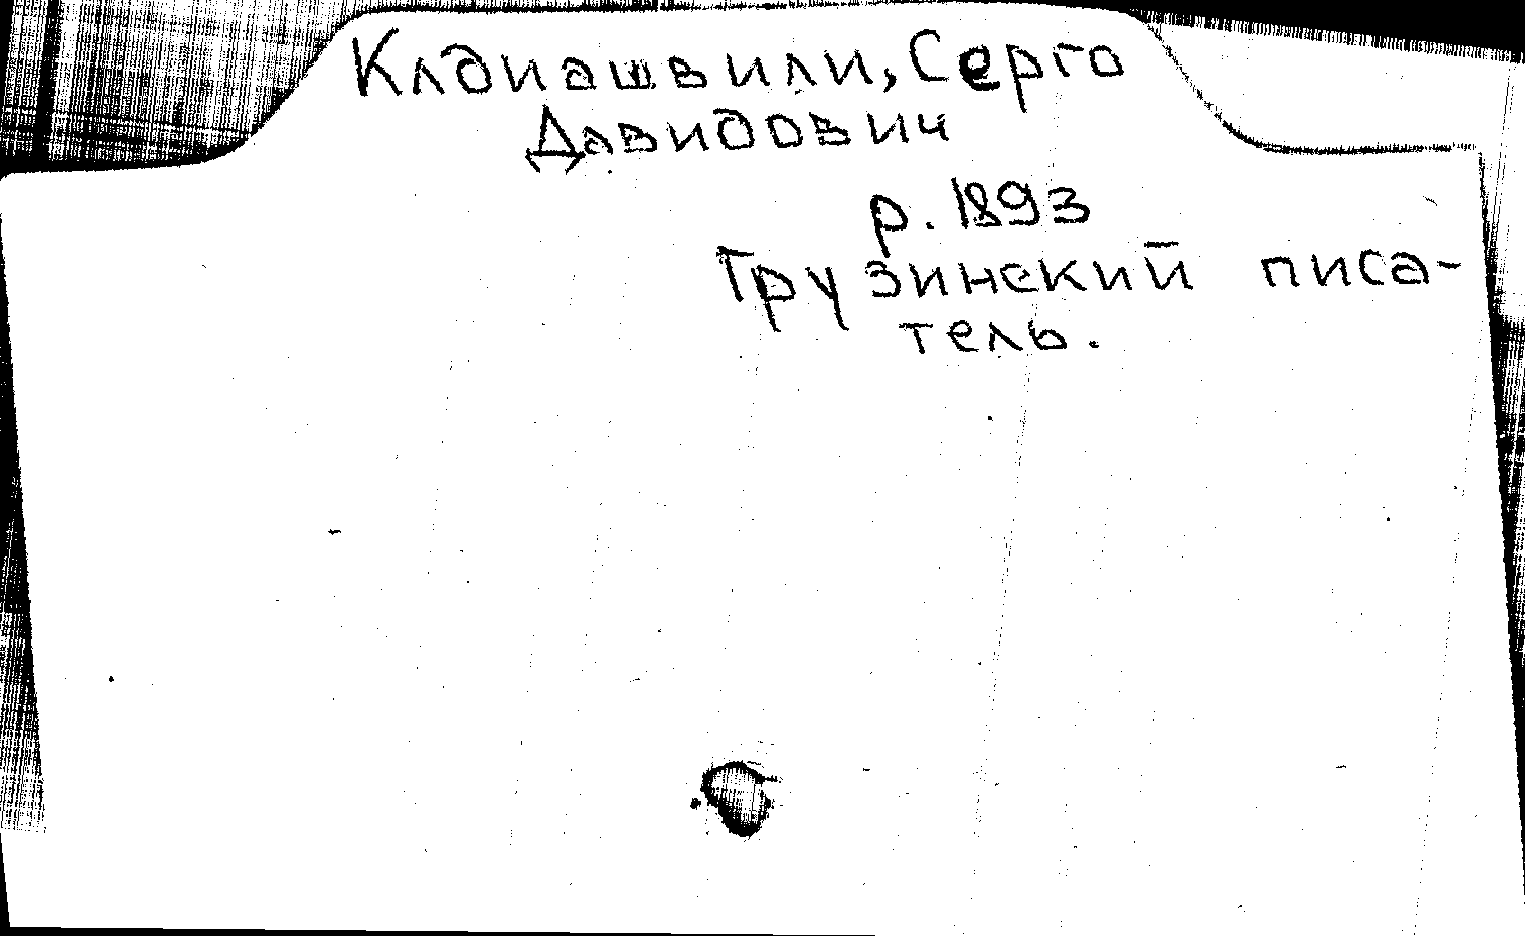 Клдиашвили, Серго
Давидович
р. 1893
Грузинский писа-
тель.